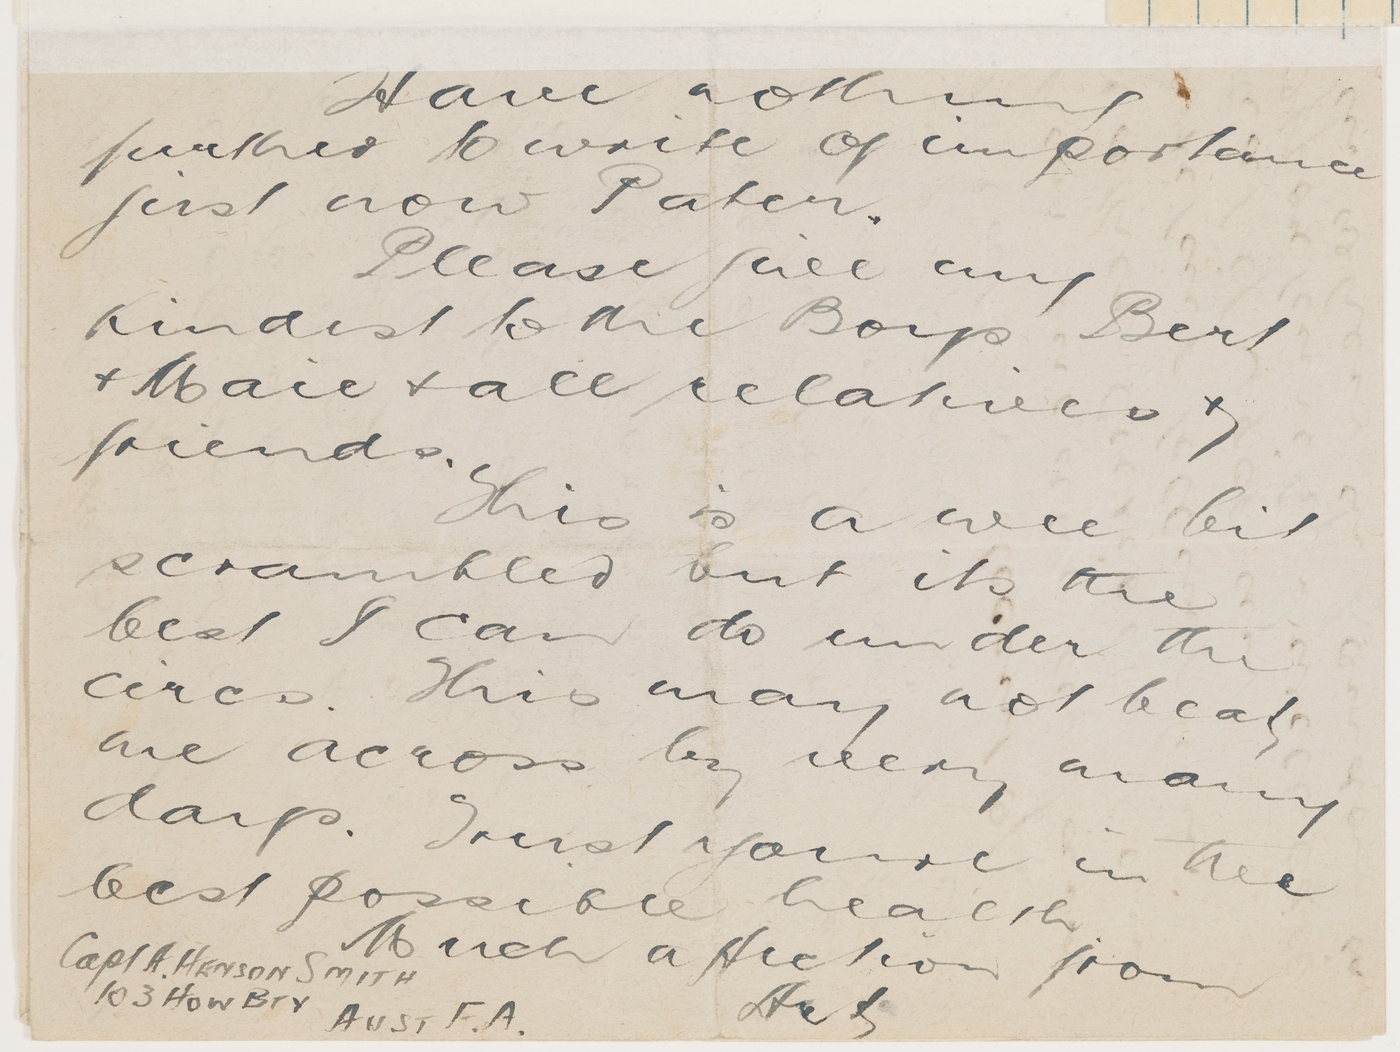 Have nothing
further to write of importance
just now Pater.
Please give my
kindest to the Boys Bert
& Maie & all relatives &
friends.
This is a wee bit
scrambled but its the
best I can do under the
circs. This may not beat
me across by very many
days. Trust you're in the
best possible health.
Much affection from
Capt A. HENSON SMITH
103 HOW BTY
AUST F.A.